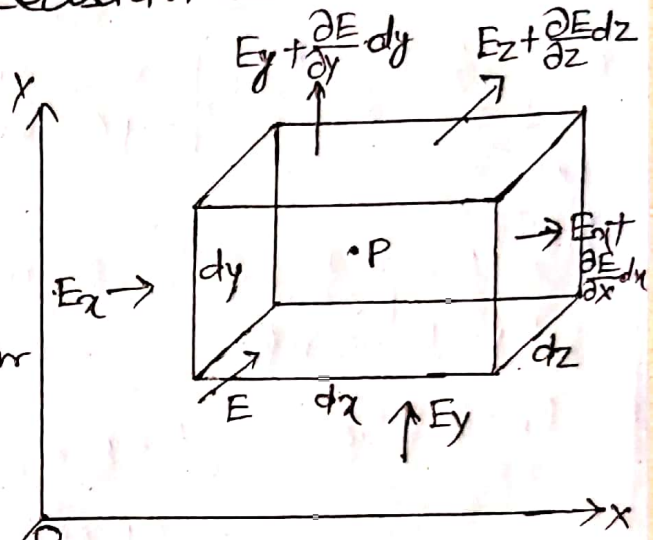 Ey + ∂E/∂y · dy
Ez + ∂E/∂z dz
Y
Ex →
dy
• P
→ Ex +
∂E/∂x dx
dz
E
dx
Ey
X